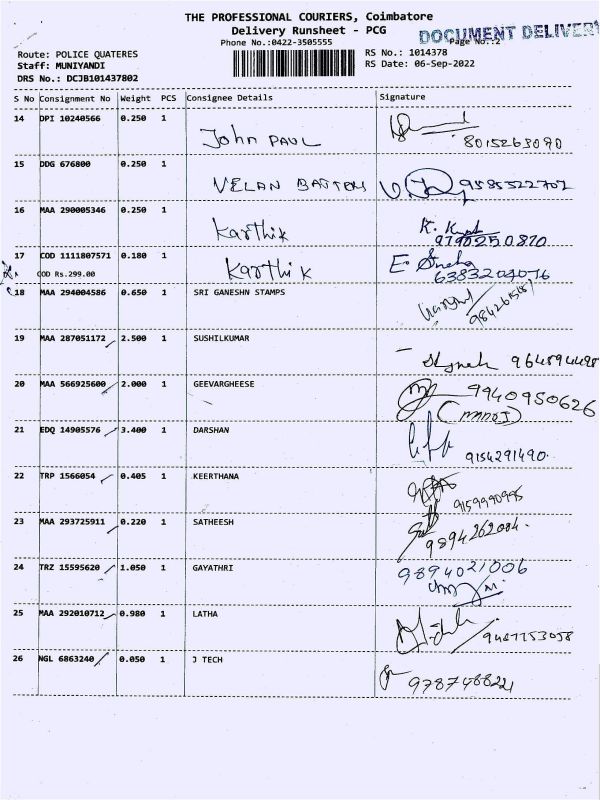 THE PROFESSIONAL COURIERS, Coimbatore
Delivery Runsheet - PCG
DOCUMENT DELIVERY
Phone No.:0422-3505555
Page No.:2
Route: POLICE QUATERES
RS No.: 1014378
Staff: MUNIYANDI
RS Date: 06-Sep-2022
DRS No.: DCJB101437802
S No Consignment No Weight PCS Consignee Details Signature
14 DPI 10240566 0.250 1
John PAUL 8015263090
15 DDG 676800 0.250 1
VELAN 9585522702
16 MAA 290005346 0.250 1
Karthik K.
9790250870
17 COD 1111807571 0.180 1
Karthik E. Sneha
COD Rs.299.00 6383204076
18 MAA 294004586 0.650 1 SRI GANESHN STAMPS
19 MAA 287051172 2.500 1 SUSHILKUMAR
964894498
20 MAA 566925600 2.000 1 GEEVARGHEESE
9940950626
21 EDQ 14905576 3.400 1 DARSHAN
9154291490.
22 TRP 1566054 0.405 1 KEERTHANA
9159990995
23 MAA 293725911 0.220 1 SATHEESH
9894262084.
24 TRZ 15595620 1.050 1 GAYATHRI
9894021006
25 MAA 292010712 0.980 1 LATHA
26 NGL 6863240 0.050 1 J TECH
9787488221